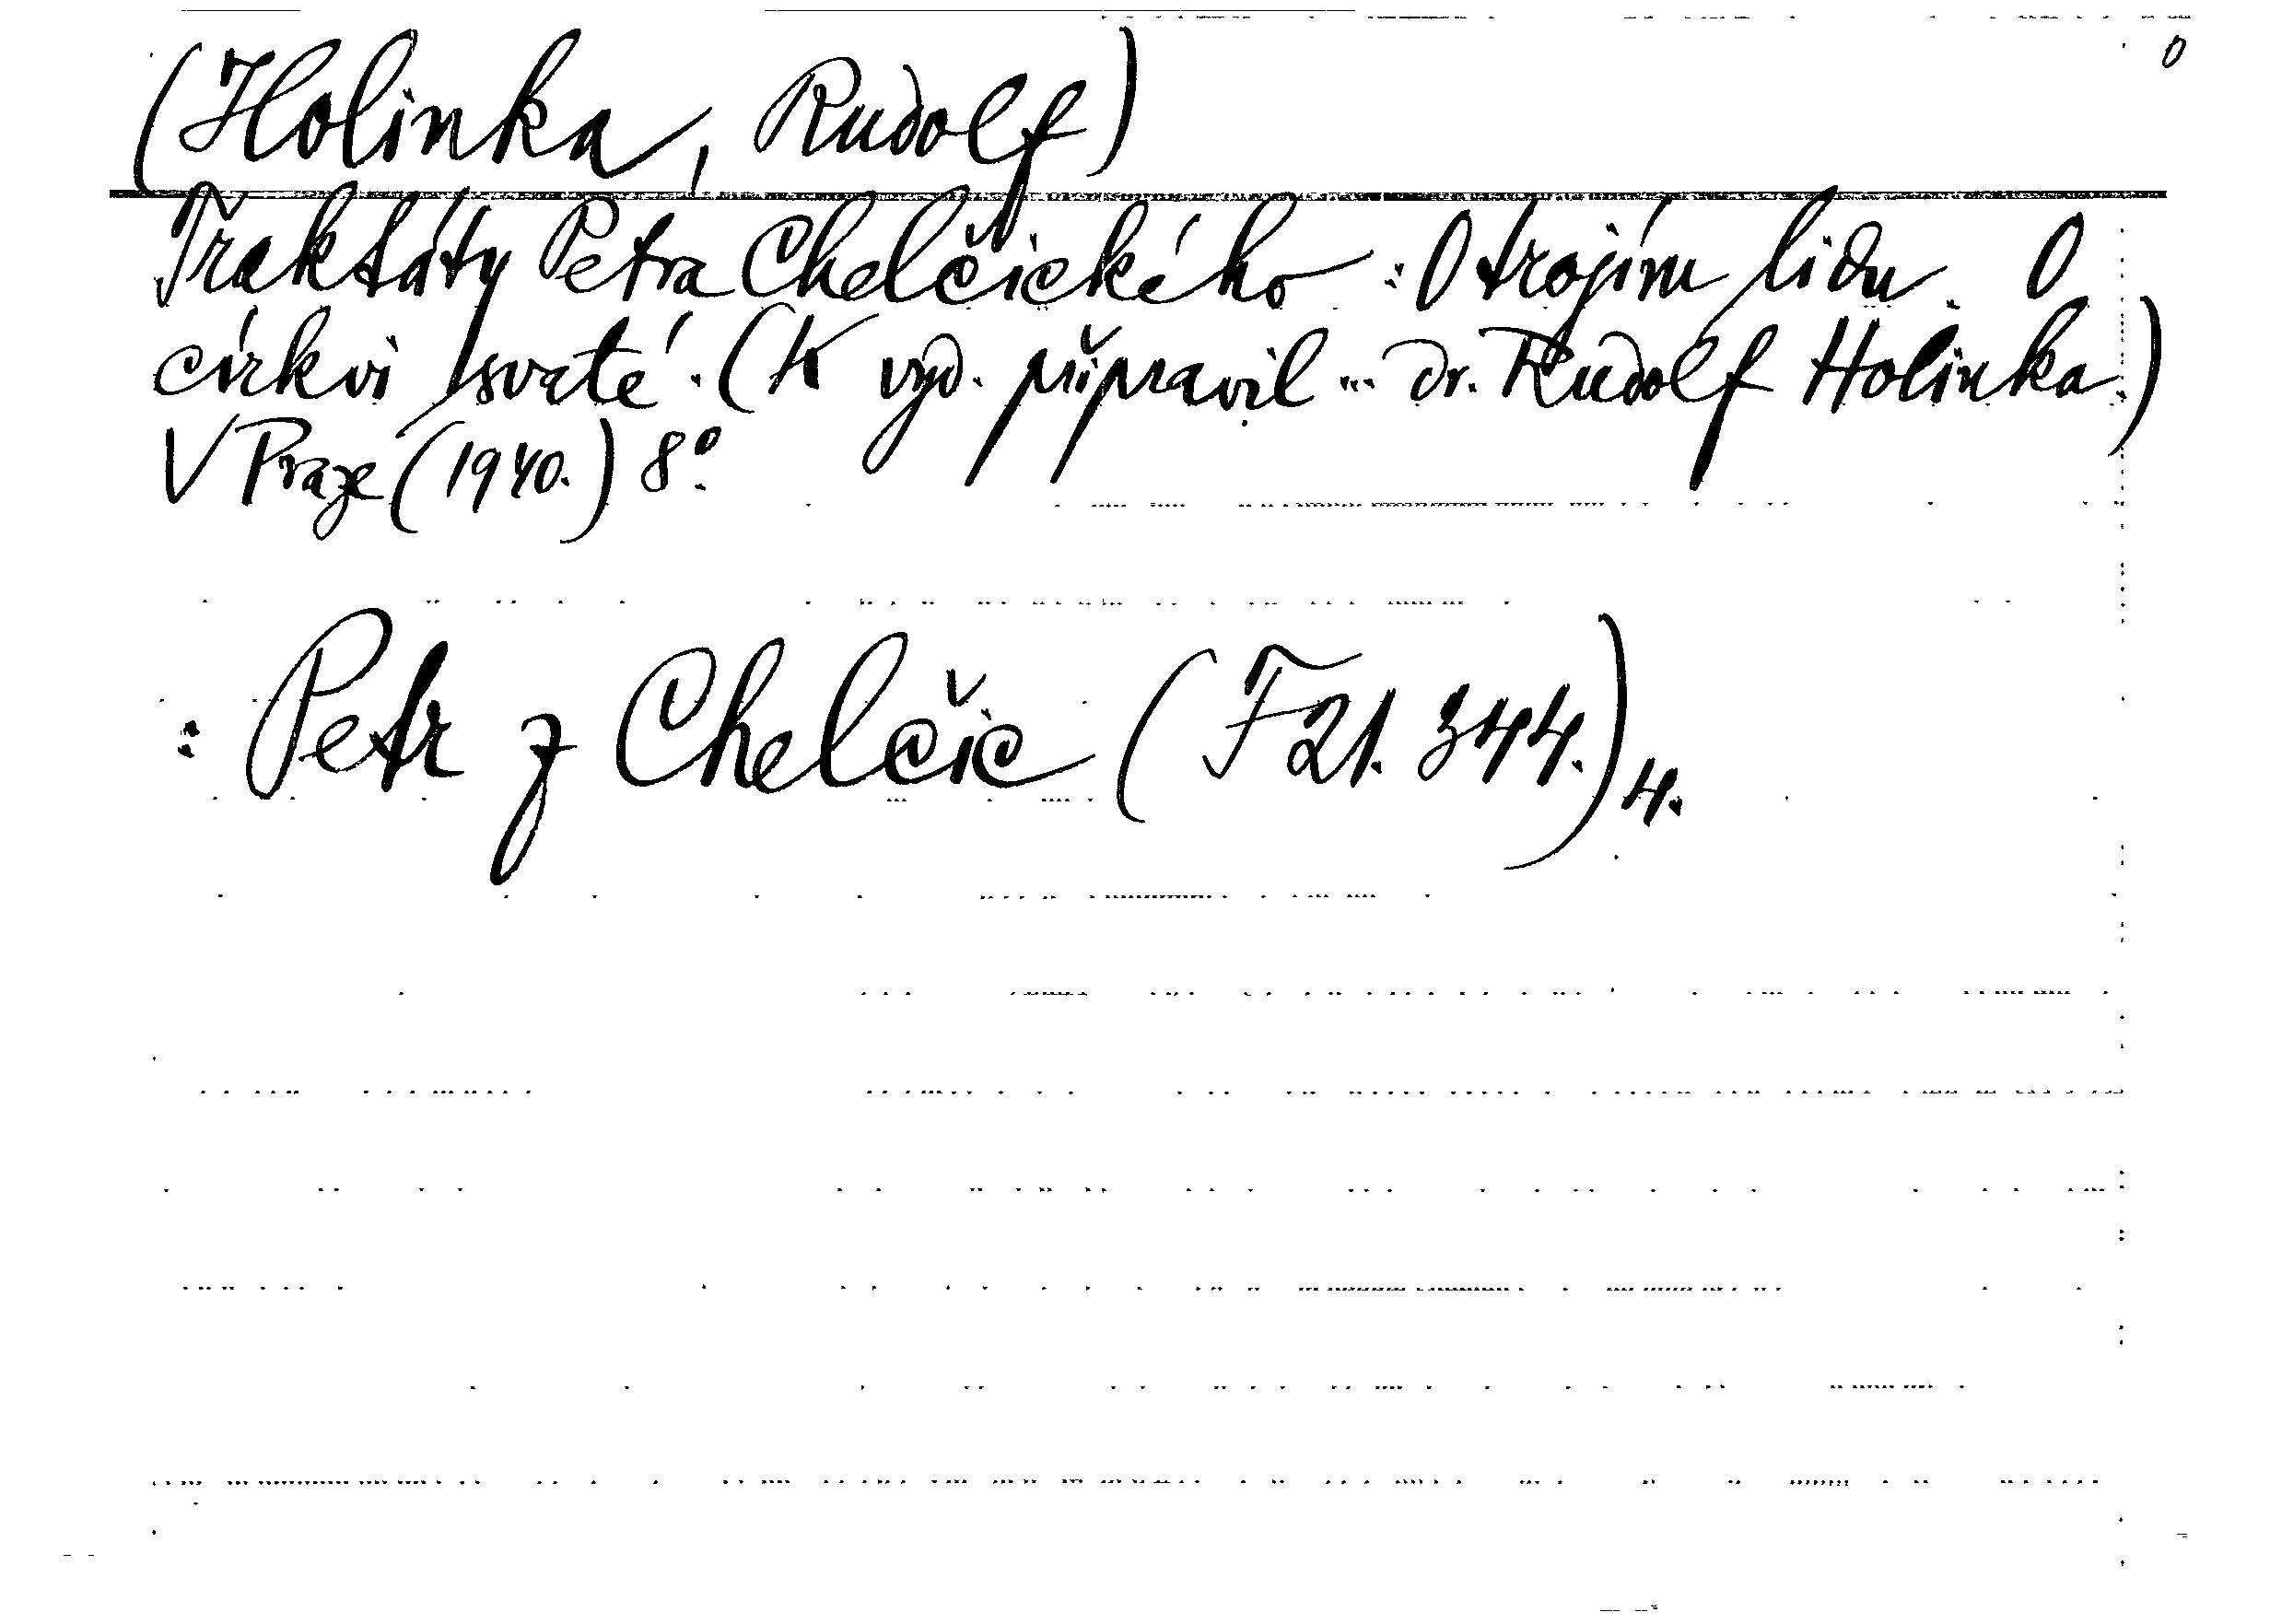 0
(Holinka, Rudolf)
Traktáty Petra Chelčického: O trojím lidu. O
církvi svaté. (K vyd. připravil ... dr. Rudolf Holinka.)
V Praze (1940.) 8°.
: Petr z Chelčic (F 21. 344.) 4.